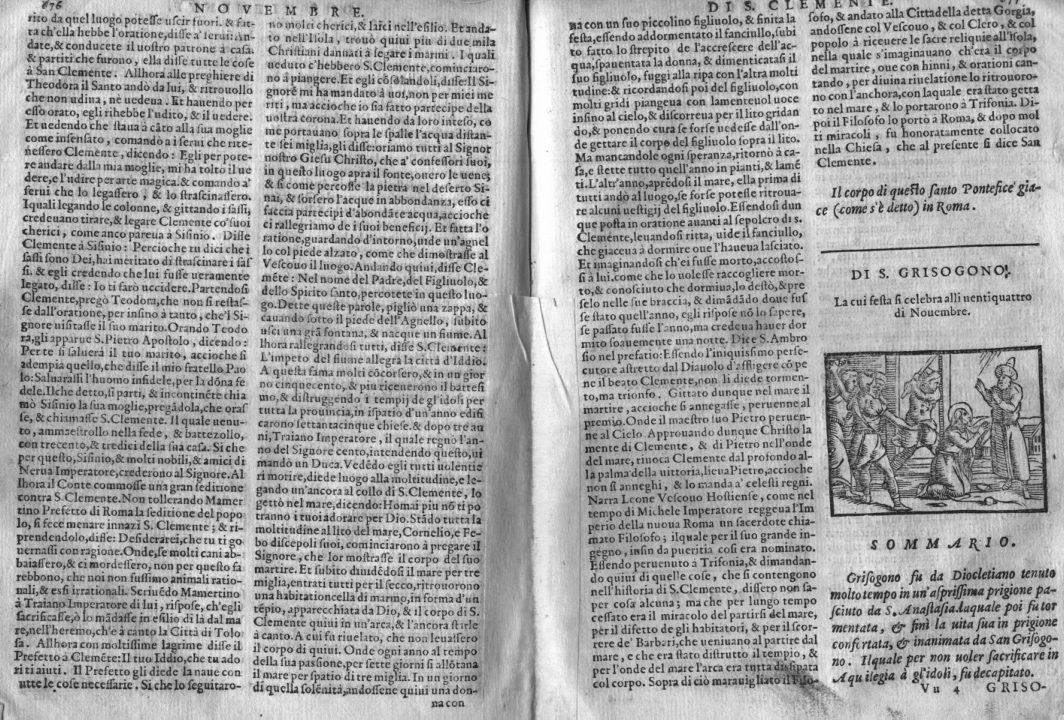 676
NOVEMBRE.
rito da quel luogo potesse uscir fuori. & fat-
ta ch'ella hebbe l'oratione, disse a' serui: An-
date, & conducete il uostro patrone a casa.
& partiti che furono, ella disse tutte le cose
à San Clemente. Allhora alle preghiere di
Theodora il Santo andò da lui, & ritrouollo
che non udiua, nè uedena. Et hauendo per
esso orato, egli rihebbe l'udito, & il uedere.
Et uedendo che staua à cãto alla sua moglie
come insensato, comandò a i serui che rite-
nessero Clemente, dicendo: Egli per pote-
re andare dalla mia moglie, mi ha tolto il ue
dere, e l'udire per arte magica. & comandò a'
serui che lo legassero, & lo strascinassero.
Iquali legando le colonne, & gittando i sassi,
credeuano tirare, & legare Clemente co' suoi
cherici, come anco pareua à Sisinio. Disse
Clemente à Sisinio: Percioche tu dici che i
sassi sono Dei, hai meritato di strascinare i sas
si. & egli credendo che lui fusse ueramente
legato, disse: Io ti farò uccidere. Partendosi
Clemente, pregò Teodora, che non si restas-
se dall'oratione, per insino à tanto, che'l Si-
gnore uisitasse il suo marito. Orando Teodo
ra, gli apparue S. Pietro Apostolo, dicendo:
Per te si saluerà il tuo marito, accioche si
adempia quello, che disse il mio fratello Pao
lo: Saluarassi l'huomo infidele, per la dõna fe
dele. Ilche detto, si partì, & incontinẽte chia
mò Sisinio la sua moglie, pregãdola, che oras
se, & chiamasse S. Clemente. Il quale uenu-
to, ammaestrollo nella fede, & battezollo,
con trecento, & tredici della sua casa. Si che
per questo, Sisinio, & molti nobili, & amici di
Nerua Imperatore, crederono al Signore. Al
lhora il Conte commosse una gran seditione
contra S. Clemente. Non tollerando Mamer
tino Prefetto di Roma la seditione del popo
lo, si fece menare innazi S. Clemente; & ri-
prendendolo, disse: Desiderarei, che tu ti go
uernassi con ragione. Onde, se molti cani ab-
baiassero, & ci mordessero, non per questo fa
rebbono, che noi non fussimo animali ratio-
nali, & essi irrationali. Scriuẽdo Mamertino
à Traiano Imperatore di lui, rispose, ch'egli
sacrificasse, ò lo mãdasse in esilio di là dal ma
re, nell'heremo, ch'è à canto la Città di Tolo
sa. Allhora con moltissime lagrime disse il
Prefetto à Clemẽte: Il tuo Iddio, che tu ado
ri ti aiuti. Il Prefetto gli diede la naue con
utte le cose necessarie. Si che lo seguitaro-
no molti cherici, & laici nell'esilio. Et anda-
to nell'Isola, trouò quiui piu di due mila
Christiani dannati à segare i marmi. I quali
ueduto c'hebbero S. Clemente, cominciaro-
no à piangere. Et egli cõsolandoli, disse: Il Si-
gnore mi ha mandato à uoi, non per miei me
riti, ma accioche io sia fatto partecipe della
uostra corona. Et hauendo da loro inteso, co
me portauano sopra le spalle l'acqua distan-
te sei miglia, gli disse: oriamo tutti al Signor
nostro Giesu Christo, che a' confessori suoi,
in questo luogo apra il fonte, ouero le uene;
& sì come percosse la pietra nel deserto Si-
nai, & sorsero l'acque in abbondanza, esso ci
faccia partecipi d'abondãte acqua, accioche
ci rallegriamo de i suoi beneficij. Et fatta l'o
ratione, guardando d'intorno, uide un'agnel
lo col piede alzato, come che dimostrasse al
Vescouo il luogo. Andando quiui, disse Cle-
mẽte: Nel nome del Padre, del Figliuolo, &
dello Spirito santo, percotete in questo luo-
go. Dette queste parole, pigliò una zappa, &
cauando sotto il piede dell'Agnello, subito
uscì una grã fontana, & nacque un fiume. Al
lhora rallegrandosi tutti, disse S. Clemente:
L'impeto del fiume allegra la città d'Iddio.
A questa fama molti cõcorsero, & in un gior
no cinquecento, & piu riceuerono il battesi
mo, & distruggendo i tempij de gl'idoli per
tutta la prouincia, in ispatio d'un'anno edifi
carono settantacinque chiese. & dopo tre an
ni, Traiano Imperatore, il quale regnò l'an-
no del Signore cento, intendendo questo, ui
mandò un Duca. Vedẽdo egli tutti uolentie
ri morire, diede luogo alla moltitudine, e le-
gando un'ancora al collo di S. Clemente, lo
gettò nel mare, dicendo: Homai piu nõ ti po
tranno i tuoi adorare per Dio. Stãdo tutta la
moltitudine al lito del mare, Cornelio, e Fe-
bo discepoli suoi, cominciarono à pregare il
Signore, che lor mostrasse il corpo del suo
martire. Et subito diuidẽdosi il mare per tre
miglia, entrati tutti per il secco, ritrouorono
una habitationcella di marmo, in forma d'un
tẽpio, apparecchiata da Dio, & il corpo di S.
Clemente quiui in un'arca, & l'ancora starle
à canto. A cui fu riuelato, che non leuassero
il corpo di quiui. Onde ogni anno al tempo
della sua passione, per sette giorni si allõtana
il mare per spatio di tre miglia. In un giorno
di quella solẽnità, andossene quiui una don-
na con
DI S. CLEMENTE.
677
na con un suo piccolino figliuolo, & finita la
festa, essendo addormentato il fanciullo, subi
to fatto lo strepito de l'accrescere dell'ac-
qua, spauentata la donna, & dimenticatasi il
suo figliuolo, fuggì alla ripa con l'altra molti
tudine: & ricordandosi poi del figliuolo, con
molti gridi piangeua con lamenteuol uoce
insino al cielo, & discorreua per il lito gridan
do, & ponendo cura se forse uedesse dall'on-
de gettare il corpo del figliuolo sopra il lito.
Ma mancandole ogni speranza, ritornò à ca-
sa, e stette tutto quell'anno in pianti, & lamẽ
ti. L'altr'anno, aprẽdosi il mare, ella prima di
tutti andò al luogo, se forse potesse ritroua-
re alcuni uestigij del figliuolo. Essendosi dun
que posta in oratione auanti al sepolcro di S.
Clemẽte, leuandosi ritta, uide il fanciullo,
che giaceua à dormire oue l'haueua lasciato.
Et imaginandosi ch'ei fusse morto, accostos-
si à lui, come che lo uolesse raccogliere mor-
to, & conosciuto che dormiua, lo destò, & pre
selo nelle sue braccia, & dimãdãdo doue fus
se stato quell'anno, egli rispose nõ lo sapere,
se passato fusse l'anno, ma credeua hauer dor
mito soauemente una notte. Dice S. Ambro
sio nel prefatio: Essendo l'iniquissimo perse-
cutore astretto dal Diauolo d'affligere cõ pe
ne il beato Clemente, non li diede tormen-
to, ma trionfo. Gittato dunque nel mare il
martire, accioche si annegasse, peruenne al
premio. Onde il maestro suo Pietro peruen-
ne al Cielo. Approuando dunque Christo la
mente di Clemente, & di Pietro nell'onde
del mare, riuoca Clemente dal profondo al-
la palma della uittoria, lieua Pietro, accioche
non si anneghi, & lo manda a' celesti regni.
Narra Leone Vescouo Hostiense, come nel
tempo di Michele Imperatore reggeua l'Im
perio della nuoua Roma un sacerdote chia-
mato Filosofo; ilquale per il suo grande in-
gegno, insin da pueritia così era nominato.
Essendo peruenuto à Trifonia, & dimandan-
do quiui di quelle cose, che si contengono
nell'historia di S. Clemente, dissero non sa-
per cosa alcuna; ma che per lungo tempo
cessato era il miracolo del partirsi del mare,
per il difetto de gli habitatori, & per il scor-
rere de' Barbari, che ueniuano al partire dal
mare, e che era stato distrutto il tempio, &
per l'onde del mare l'arca era tutta dissipata
col corpo. Sopra di ciò marauigliato il Filo-
sofo, & andato alla Cittadella detta Gorgia,
andossene col Vescouo, & col Clero, & col
popolo à riceuere le sacre reliquie all'Isola,
nella quale s'imaginauano ch'era il corpo
del martire, oue con hinni, & orationi can-
tando, per diuina riuelatione lo ritrouoro-
no con l'anchora, con laquale era stato getta
to nel mare, & lo portarono à Trifonia. Di-
poi il Filosofo lo portò à Roma, & dopo mol
ti miracoli, fu honoratamente collocato
nella Chiesa, che al presente si dice San
Clemente.
Il corpo di questo santo Pontefice gia-
ce (come s'è detto) in Roma.
DI S. GRISOGONO.
La cui festa si celebra alli uentiquattro
di Nouembre.
SOMMARIO.
Grisogono fu da Diocletiano tenuto
molto tempo in un'asprissima prigione pa-
sciuto da S. Anastasia. laquale poi fu tor
mentata, & finì la uita sua in prigione
confirtata, & inanimata da San Grisogo-
no. Ilquale per non uoler sacrificare in
Aquilegia à gl'idoli, fù decapitato.
Vu 4 GRISO-